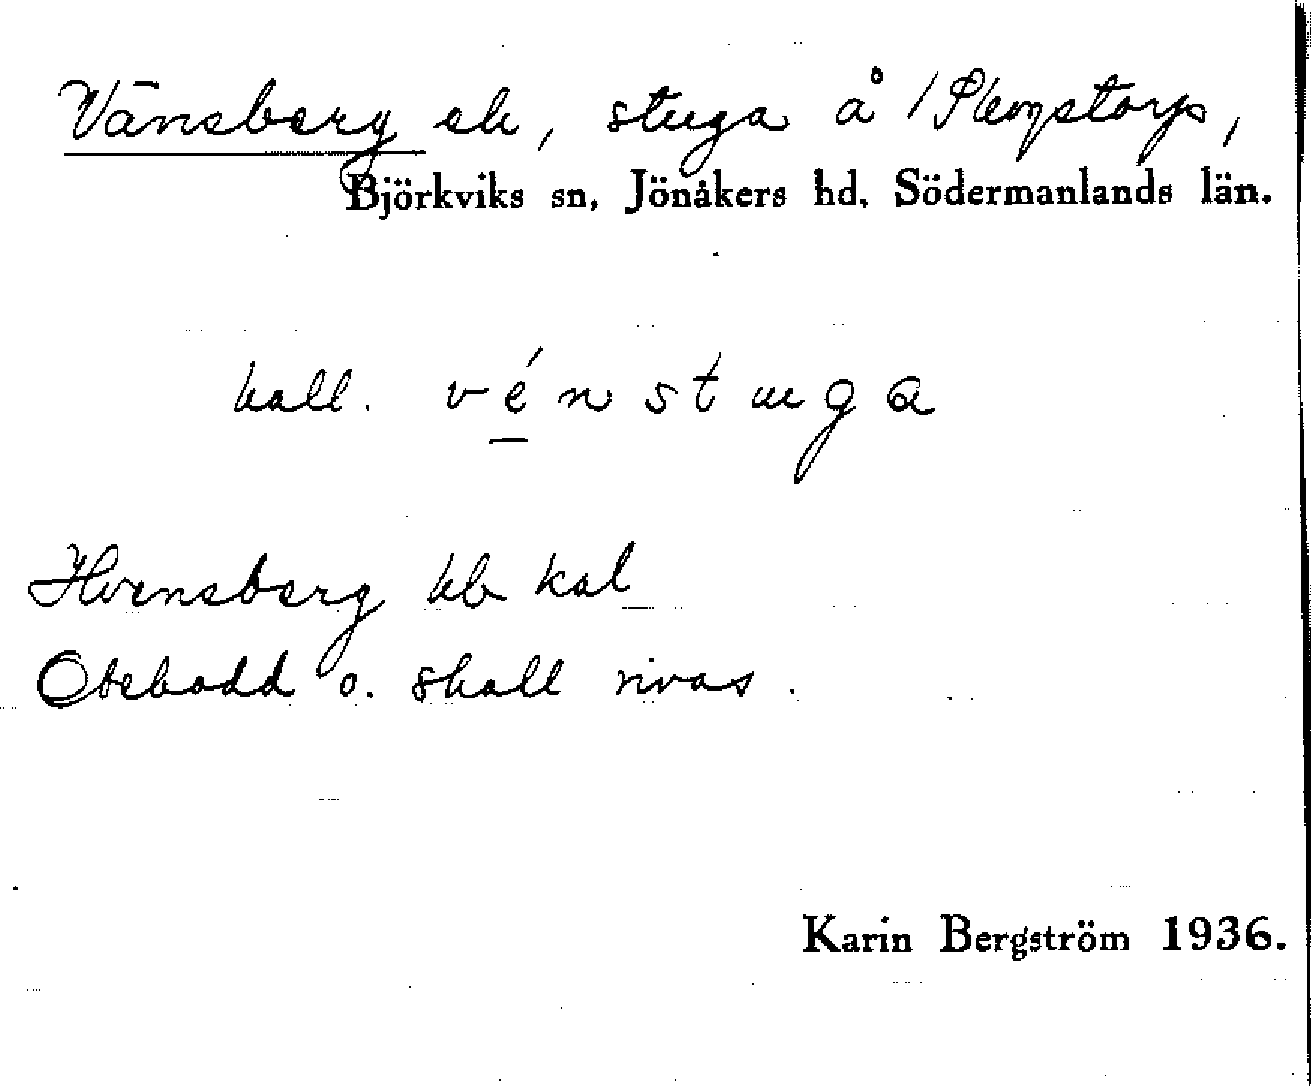 Vänsberg ek, stuga å 1 Plevgstorp,
Björkviks sn, Jönåkers hd, Södermanlands län.
kall. vénstuga
Hvensberg hb kal
Obebodd o. skall rivas.
Karin Bergström 1936.